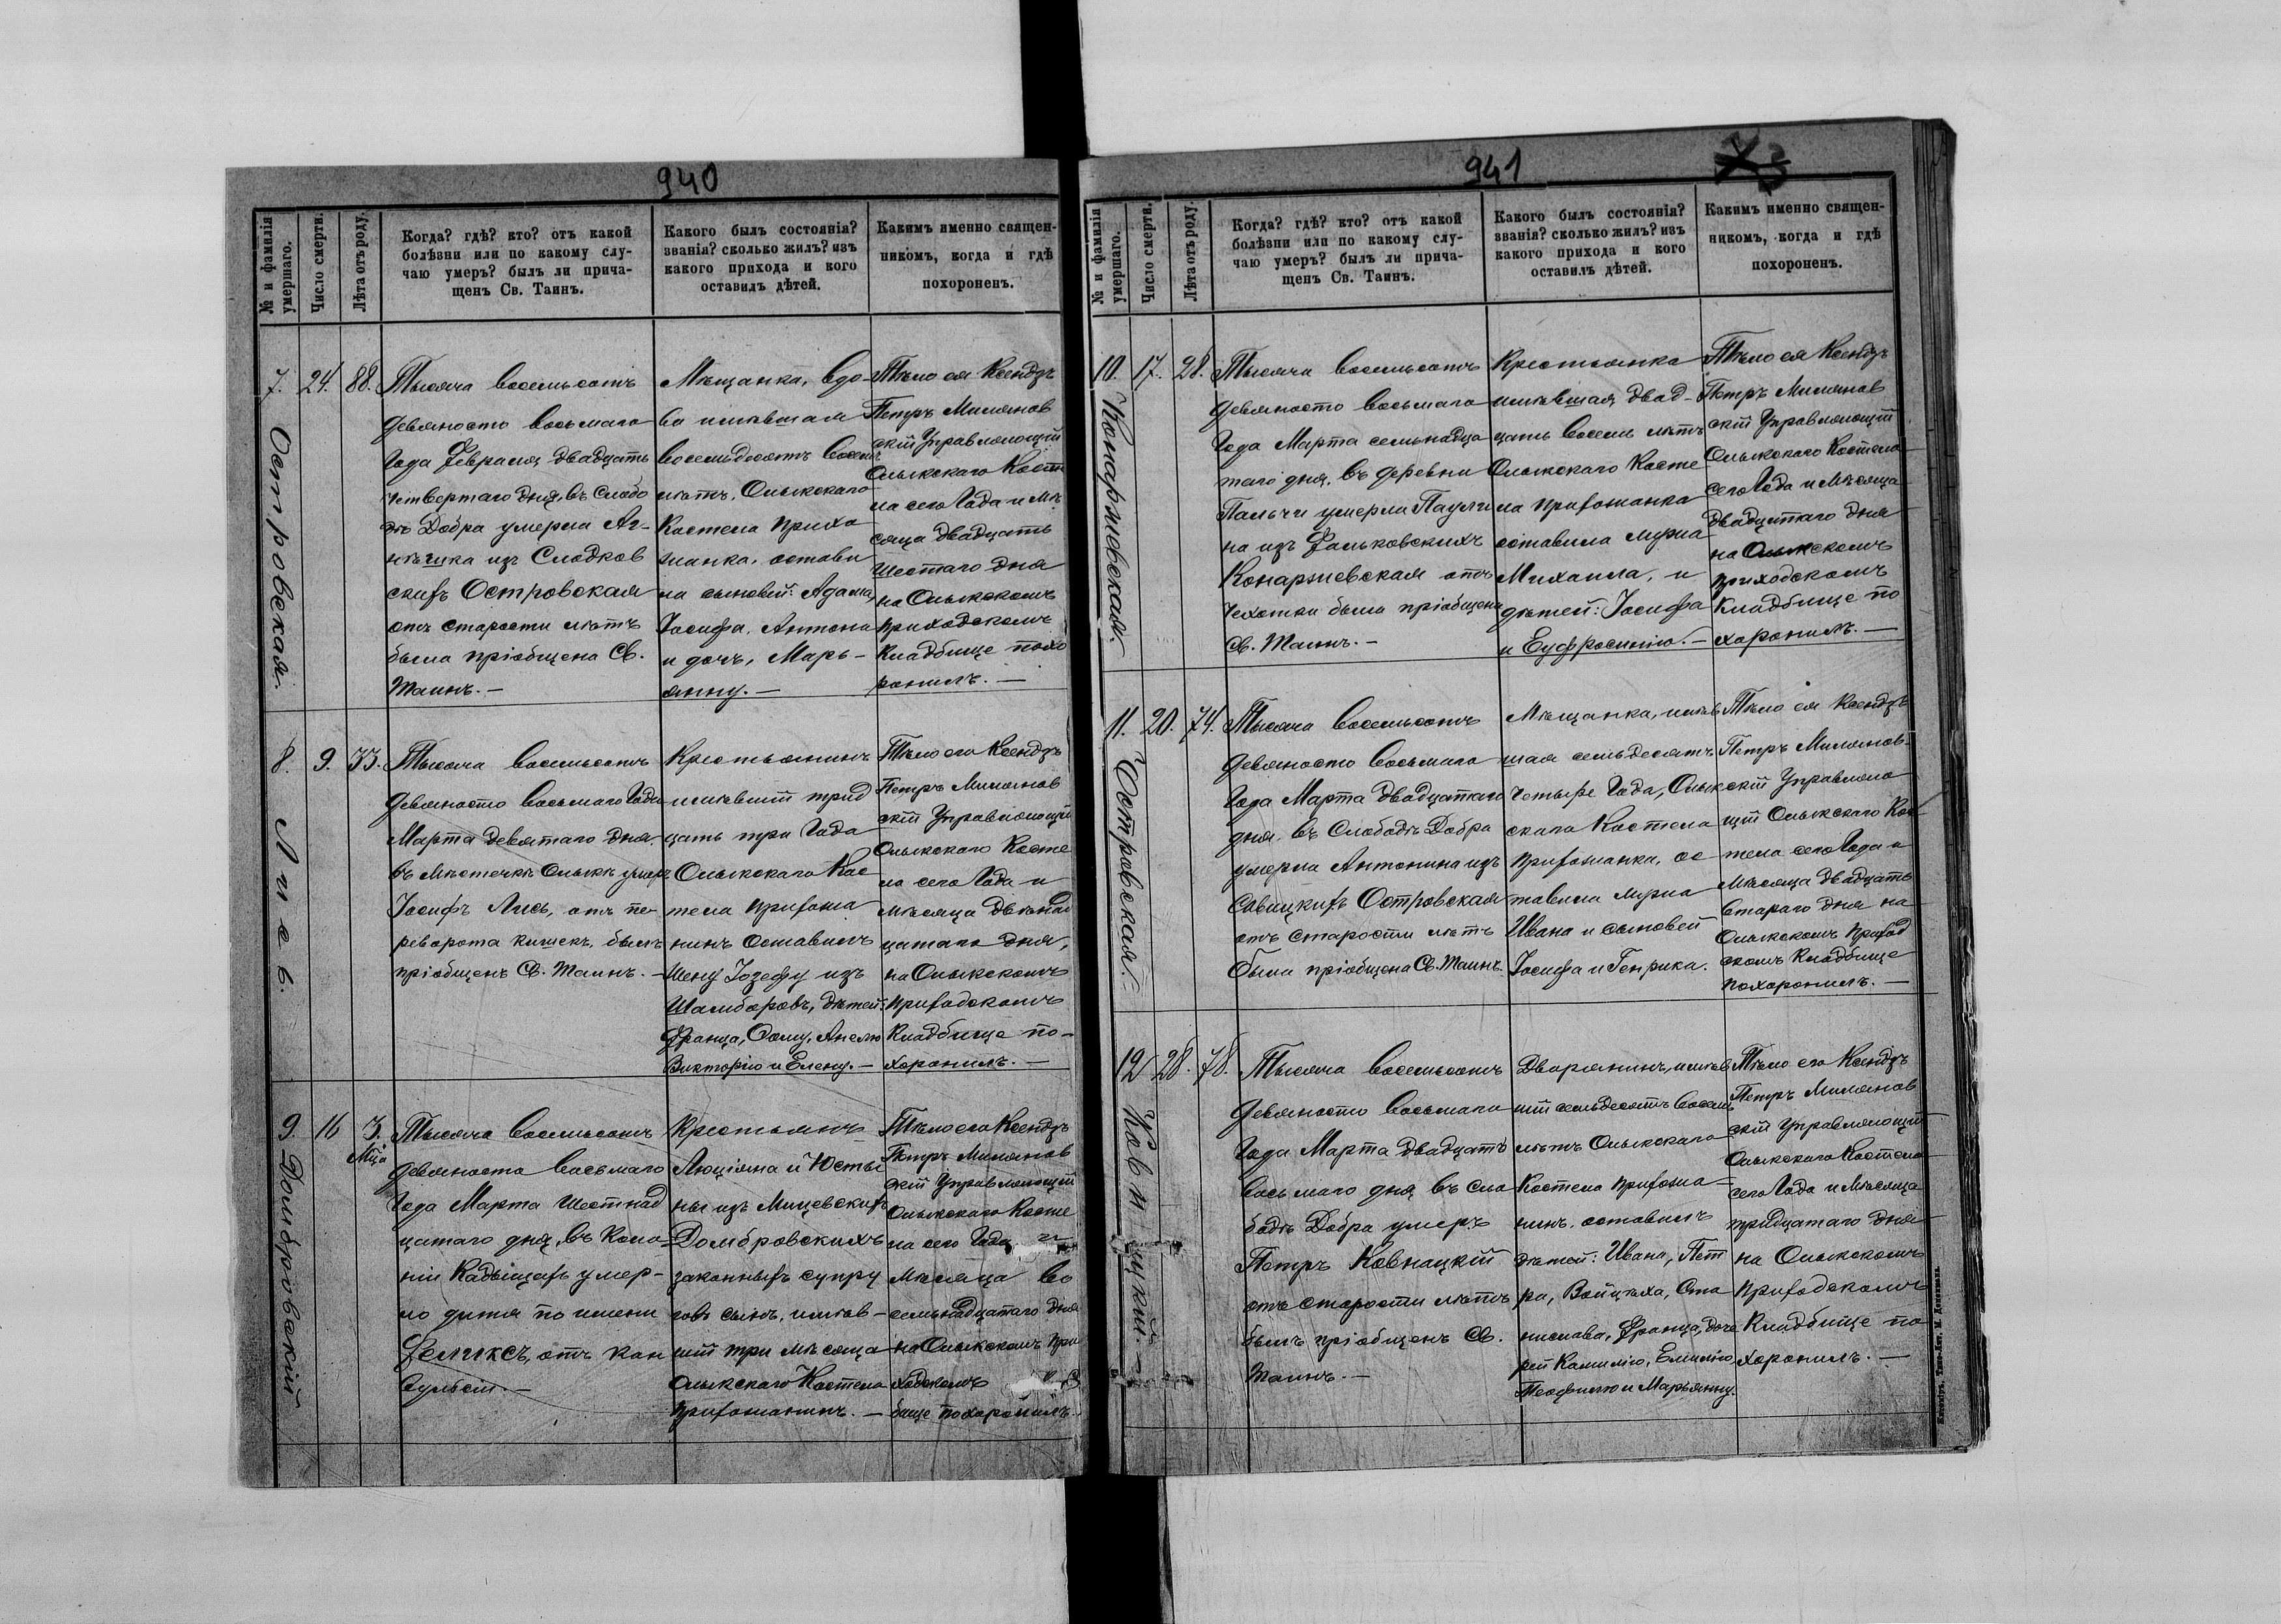 940
№ и фамилія умершаго.
Число смерти.
Лѣта отъ роду.
Когда? гдѣ? кто? отъ какой
болѣзни или по какому слу-
чаю умеръ? былъ ли прича-
щенъ Св. Таинъ.
Какого былъ состоянія?
званія? сколько жилъ? изъ
какого прихода и кого
оставилъ дѣтей.
Какимъ именно священ-
никомъ, когда и гдѣ
похороненъ.
7.
Островская.
24.
88.
Тысяча восемьсотъ
девяносто восьмаго
Года Февраля двадцать
четвертаго дня, въ Слобо
дѣ Добра умерла Аг-
нѣшка изъ Сладков
скихъ Островская
отъ старости лѣтъ
была пріобщена Св.
Таинъ. —
Мѣщанка, вдо-
ва имѣвшая
восемьдесятъ восемь
лѣтъ, Олыкскаго
Костела прихо
жанка, остави
ла сыновей: Адама,
Іосифа, Антона
и дочь, Марь-
янну. —
Тѣло ея Ксендзъ
Петръ Милянов
скій Управляющій
Олыкскаго Косте
ла сего Года и Мѣ
сяца двадцать
Шестаго дня
на Олыкскомъ
приходскомъ
Кладбище похо
ронилъ. —
8.
Лисъ.
9.
33.
Тысяча восемьсотъ
девяносто восьмаго Года
Марта девятаго дня
въ Мѣстечкѣ Олыкѣ умеръ
Іосифъ Лисъ, отъ пе-
реворота кишекъ, былъ
пріобщенъ Св. Таинъ. —
Крестьянинъ
имѣвшій трид
цать три Года
Олыкскаго Кос
тела прихожа
нинъ оставилъ
Жену Іозефу изъ
Шамборовъ, дѣтей:
Франца, Анелю
Викторію и Елену. —
Тѣло его Ксендзъ
Петръ Милянов
скій Управляющій
Олыкскаго Косте
ла сего Года и
Мѣсяца двѣнад
цатаго дня,
на Олыкскомъ
приходскомъ
Кладбище по-
хоронилъ. —
9.
Домбровскій
16
3.
Мца
Тысяча восемьсотъ
девяносто восьмаго
Года Марта Шестнад
цатаго дня, въ Коло
ніи Кадыщахъ умер-
ло дитя по имени
Феликсъ, отъ кон
вульсіи. —
Крестьянъ
Люціяна и Юсты
ны изъ Мицевскихъ
Домбровскихъ
законныхъ супру
говъ сынъ, имѣв-
шій три мѣсяца
Олыкскаго Костела
прихожанинъ. —
Тѣло его Ксендзъ
Петръ Милянов
скій Управляющій
Олыкскаго Косте
ла сего Года и
Мѣсяца во
семьнадцатаго дня
на Олыкскомъ при
ходскомъ
бище похоронилъ.
941
№ и фамилія умершаго.
Число смерти.
Лѣта отъ роду.
Когда? гдѣ? кто? отъ какой
болѣзни или по какому слу-
чаю умеръ? былъ ли прича-
щенъ Св. Таинъ.
Какого былъ состоянія?
званія? сколько жилъ? изъ
какого прихода и кого
оставилъ дѣтей.
Какимъ именно священ-
никомъ, когда и гдѣ
похороненъ.
10.
Конаржевская.
17.
28.
Тысяча восемьсотъ
девяносто восьмаго
Года Марта семьнадца
таго дня, въ деревни
Пальчи умерла Паули
на изъ Фальковскихъ
Конаржевская отъ
чехотки была пріобщена
Св. Таинъ. —
Крестьянка
имѣвшая двад-
цать восемь лѣтъ
Олыкскаго Косте
ла прихожанка
оставила мужа
Михаила, и
дѣтей: Іосифа
и Еуфросинію. —
Тѣло ея Ксендзъ
Петръ Милянов
скій Управляющій
Олыкскаго Костела
сего Года и Мѣсяца
двадцатаго дня
на Олыкскомъ
приходскомъ
Кладбище по
хоронилъ. —
11.
Островская.
20.
74.
Тысяча восемьсотъ
девяносто восьмаго
Года Марта двадцатаго
дня, въ Слободѣ Добра
умерла Антонина изъ
Савицкихъ Островская
отъ старости лѣтъ
была пріобщена Св. Таинъ.
Мѣщанка, имѣв
шая семьдесятъ
четыре Года, Олык
скаго Костела
прихожанка, ос
тавила мужа
Ивана и сыновей
Іосифа и Генрика.
Тѣло ея Ксендзъ
Петръ Милянов-
скій Управляю
щій Олыкскаго Кос
тела сего Года и
Мѣсяца двадцать
втараго дня на
Олыкскомъ приход
скомъ Кладбище
похоронилъ. —
12
Ковнацкій.
28.
78.
Тысяча восемьсотъ
девяносто восьмаго
Года Марта двадцать
восьмаго дня въ Сло
бодѣ Добра умеръ
Петръ Ковнацкій
отъ старости лѣтъ
былъ пріобщенъ Св.
Таинъ. —
Дворянинъ, имѣв
шій семьдесятъ восемь
лѣтъ Олыкскаго
Костела прихожа
нинъ, оставилъ
дѣтей: Ивана, Пет
ра, Войцѣха, Ста
нислава, Франца, доче
рей Камилію, Емилію,
Теофилю и Марьянну.
Тѣло его Ксендзъ
Петръ Милянов
скій Управляющій
Олыкскаго Костела
сего Года и Мѣсяца
тридцатаго дня
на Олыкскомъ
приходскомъ
Кладбище по
хоронилъ. —
Житоміръ, Типо-Лит. М. Дененмана.